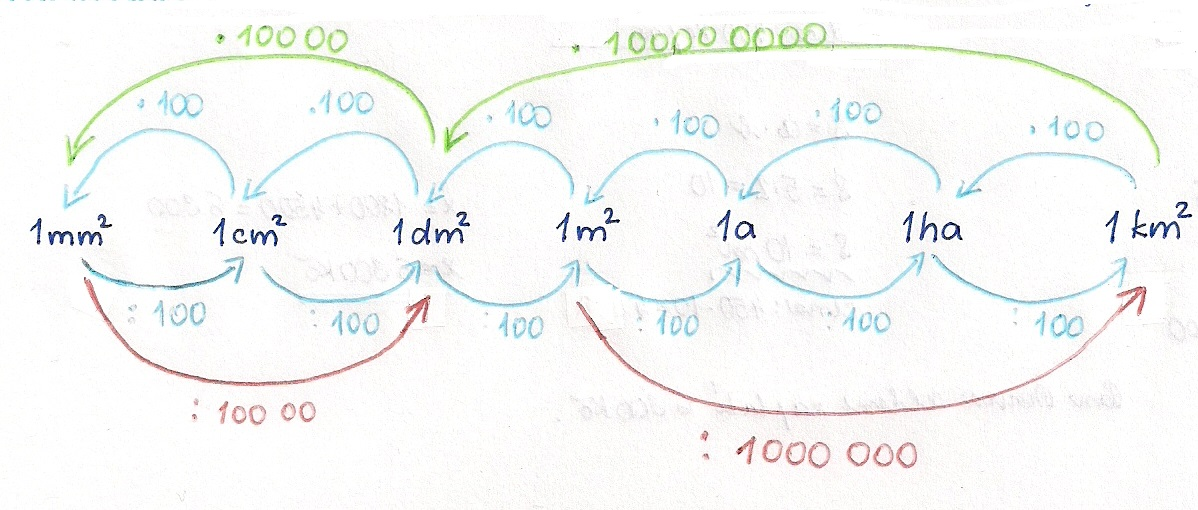 · 100 00 · 10000 0000
· 100 · 100 · 100 · 100 · 100 · 100
1mm² 1cm² 1dm² 1m² 1a 1ha 1km²
: 100 : 100 : 100 : 100 : 100 : 100
: 100 00
: 1000 000